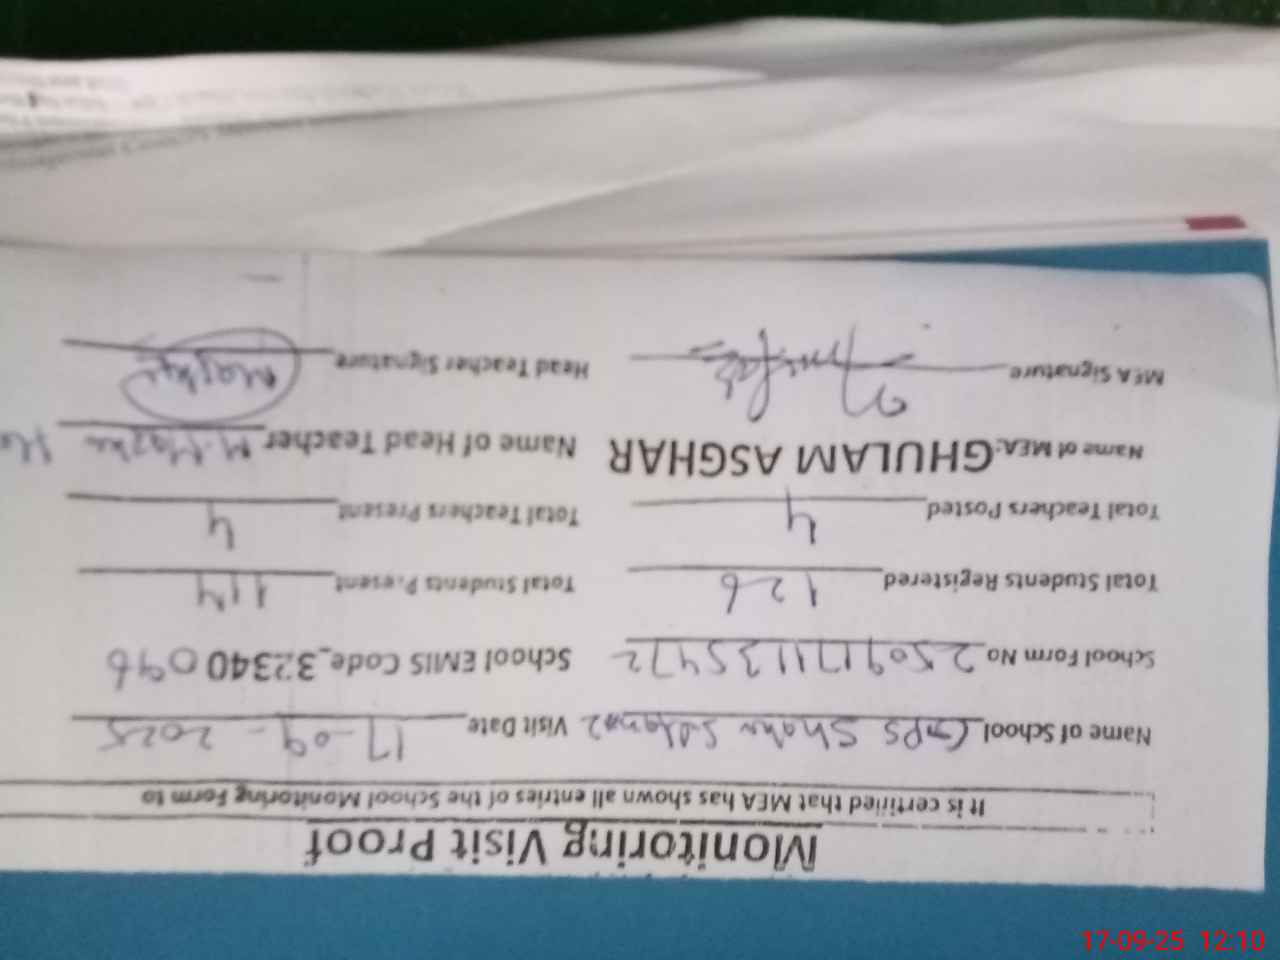 Monitoring Visit Proof
It is certified that MEA has shown all entries of the School Monitoring Form to
Name of School GPS Shahr Sultan 2 Visit Date 17-09-2025
School Form No 2509171135472 School EMIS Code_32340096
Total Students Registered 126 Total Students Present 114
Total Teachers Posted 4 Total Teachers Present 4
Name of MEA: GHULAM ASGHAR Name of Head Teacher M. Mazhar
MEA Signature Head Teacher Signature
17-09-25 12:10